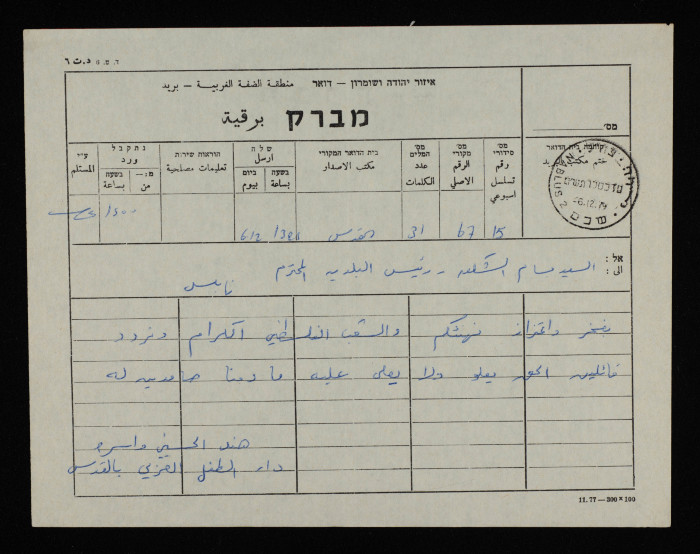 ד. מ. 11 د.ت ٦
איזור יהודה ושומרון – דואר منطقة الضفة الغربية – بريد
מברק برقية
מס׳
מס׳ סידורי رقم تسلسل اسبوعي
מס׳ מקורי الرقم الاصلي
מס׳ המלים عدد الكلمات
בית הדואר המקורי مكتب الاصدار
שלח ارسل
בשעה بساعة
ביום بيوم
הוראות שירות تعليمات مصلحية
נתקבל ورد
מ:— من
בשעה بساعة
ע״י المستلم
חותמת בית הדואר ختم مكتب البريد
NABLUS 2
-6.12.79
שכם
15
67
31
القدس
1325
6/12
1500
אל: الى:
السيد بسام الشكعه - رئيس البلديه المحترم
نابلس
بفخر واعتزاز نهنئكم والشعب الفلسطيني الكرام ونردد
قائلين الحق يعلو ولا يعلى عليه ما دمنا صامدين له
هند الحسيني واسرة
دار الطفل العربي بالقدس
11.77—300×100